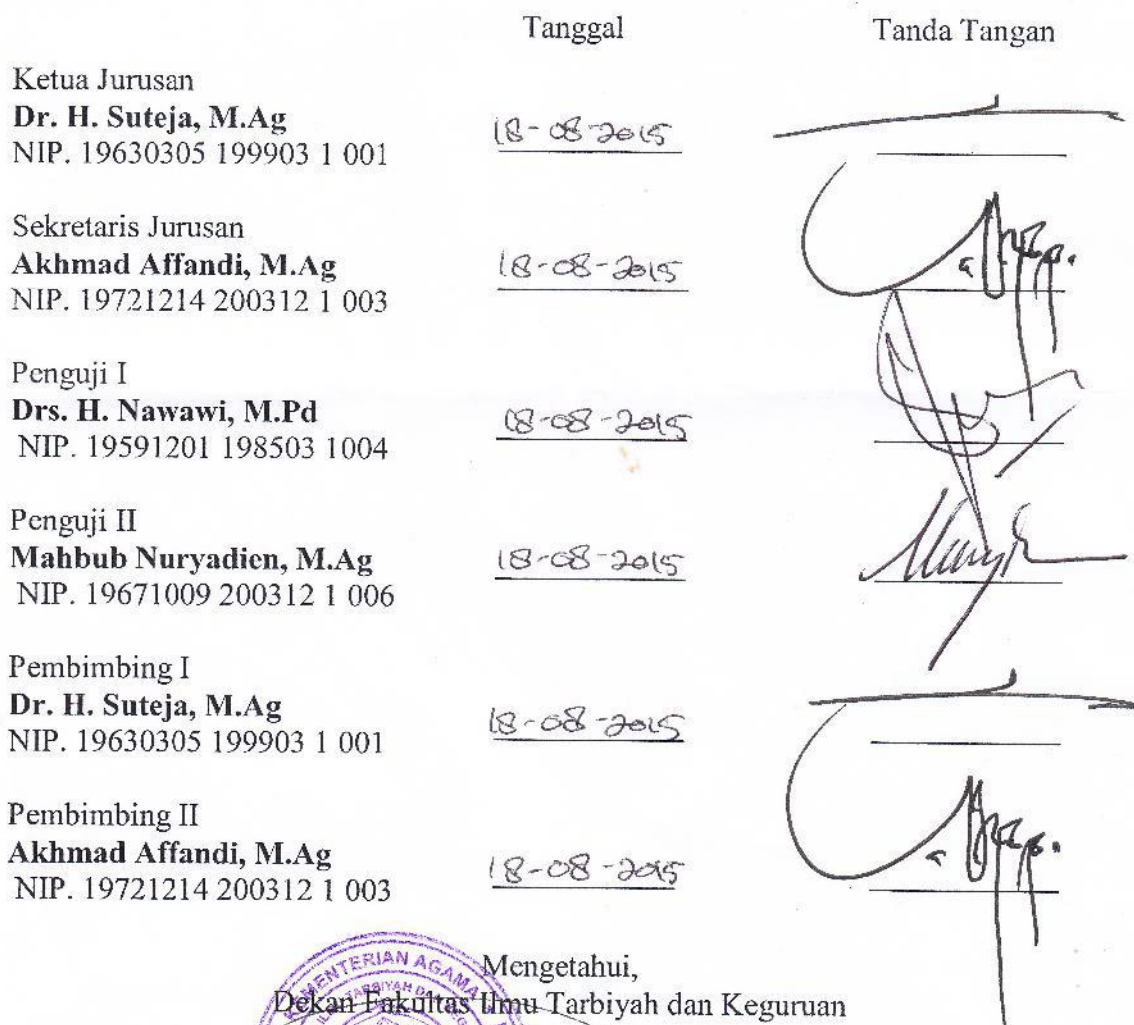 Tanggal Tanda Tangan
Ketua Jurusan
Dr. H. Suteja, M.Ag
NIP. 19630305 199903 1 001
18-08-2015
Sekretaris Jurusan
Akhmad Affandi, M.Ag
NIP. 19721214 200312 1 003
18-08-2015
Penguji I
Drs. H. Nawawi, M.Pd
NIP. 19591201 198503 1004
18-08-2015
Penguji II
Mahbub Nuryadien, M.Ag
NIP. 19671009 200312 1 006
18-08-2015
Pembimbing I
Dr. H. Suteja, M.Ag
NIP. 19630305 199903 1 001
18-08-2015
Pembimbing II
Akhmad Affandi, M.Ag
NIP. 19721214 200312 1 003
18-08-2015
Mengetahui,
Dekan Fakultas Ilmu Tarbiyah dan Keguruan
KEMENTERIAN AGAMA